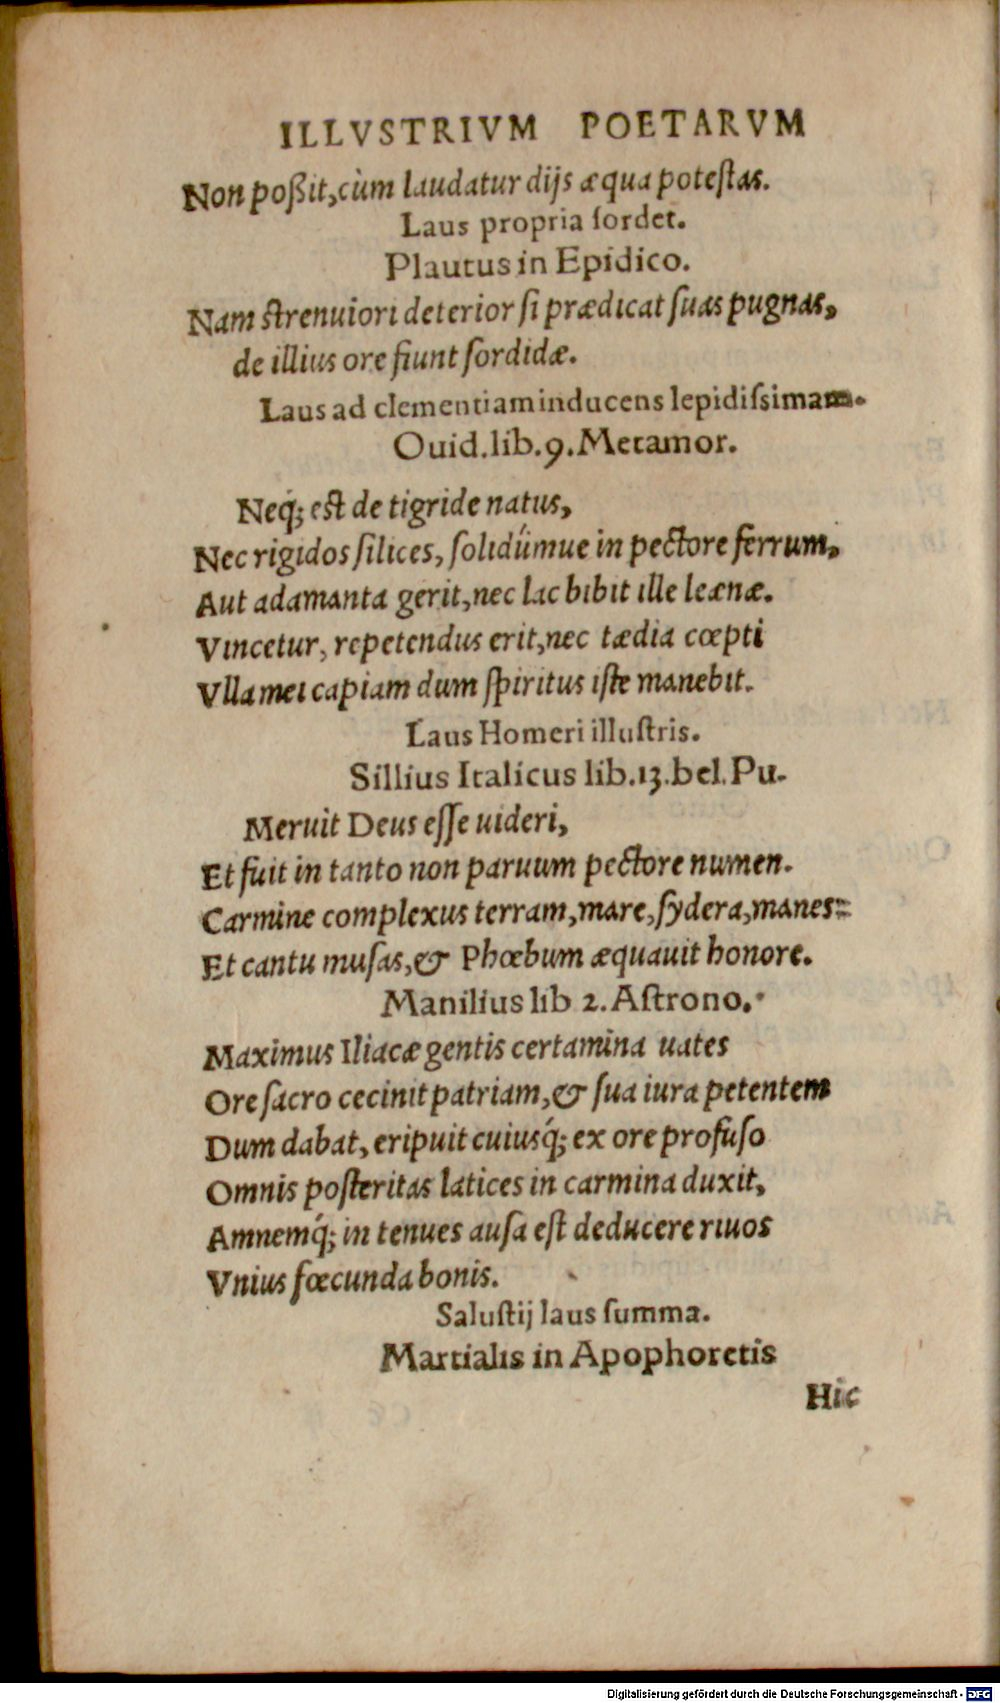 ILLVSTRIVM POETARVM
Non poßit, cùm laudatur dijs æqua potestas.
Laus propria ſordet.
Plautus in Epidico.
Nam strenuiori deterior ſi prædicat ſuas pugnas,
de illius ore fiunt ſordidæ.
Laus ad clementiam inducens lepidiſsimam.
Ouid. lib. 9. Metamor.
Neq́; est de tigride natus,
Nec rigidos ſilices, ſolidúmue in pectore ferrum,
Aut adamanta gerit, nec lac bibit ille leænæ.
Vincetur, repetendus erit, nec tædia cœpti
Vlla mei capiam dum ſpiritus iſte manebit.
Laus Homeri illuſtris.
Sillius Italicus lib. 13. bel. Pu.
Meruit Deus eſſe uideri,
Et fuit in tanto non paruum pectore numen.
Carmine complexus terram, mare, ſydera, manes:
Et cantu muſas, & Phœbum æquauit honore.
Manilius lib 2. Aſtrono.
Maximus Iliacæ gentis certamina uates
Ore ſacro cecinit patriam, & ſua iura petentem
Dum dabat, eripuit cuiusq́; ex ore profuſo
Omnis poſteritas latices in carmina duxit,
Amnemq́; in tenues auſa eſt deducere riuos
Vnius fœcunda bonis.
Saluſtij laus ſumma.
Martialis in Apophoretis
Hic
Digitalisierung gefördert durch die Deutsche Forschungsgemeinschaft - DFG